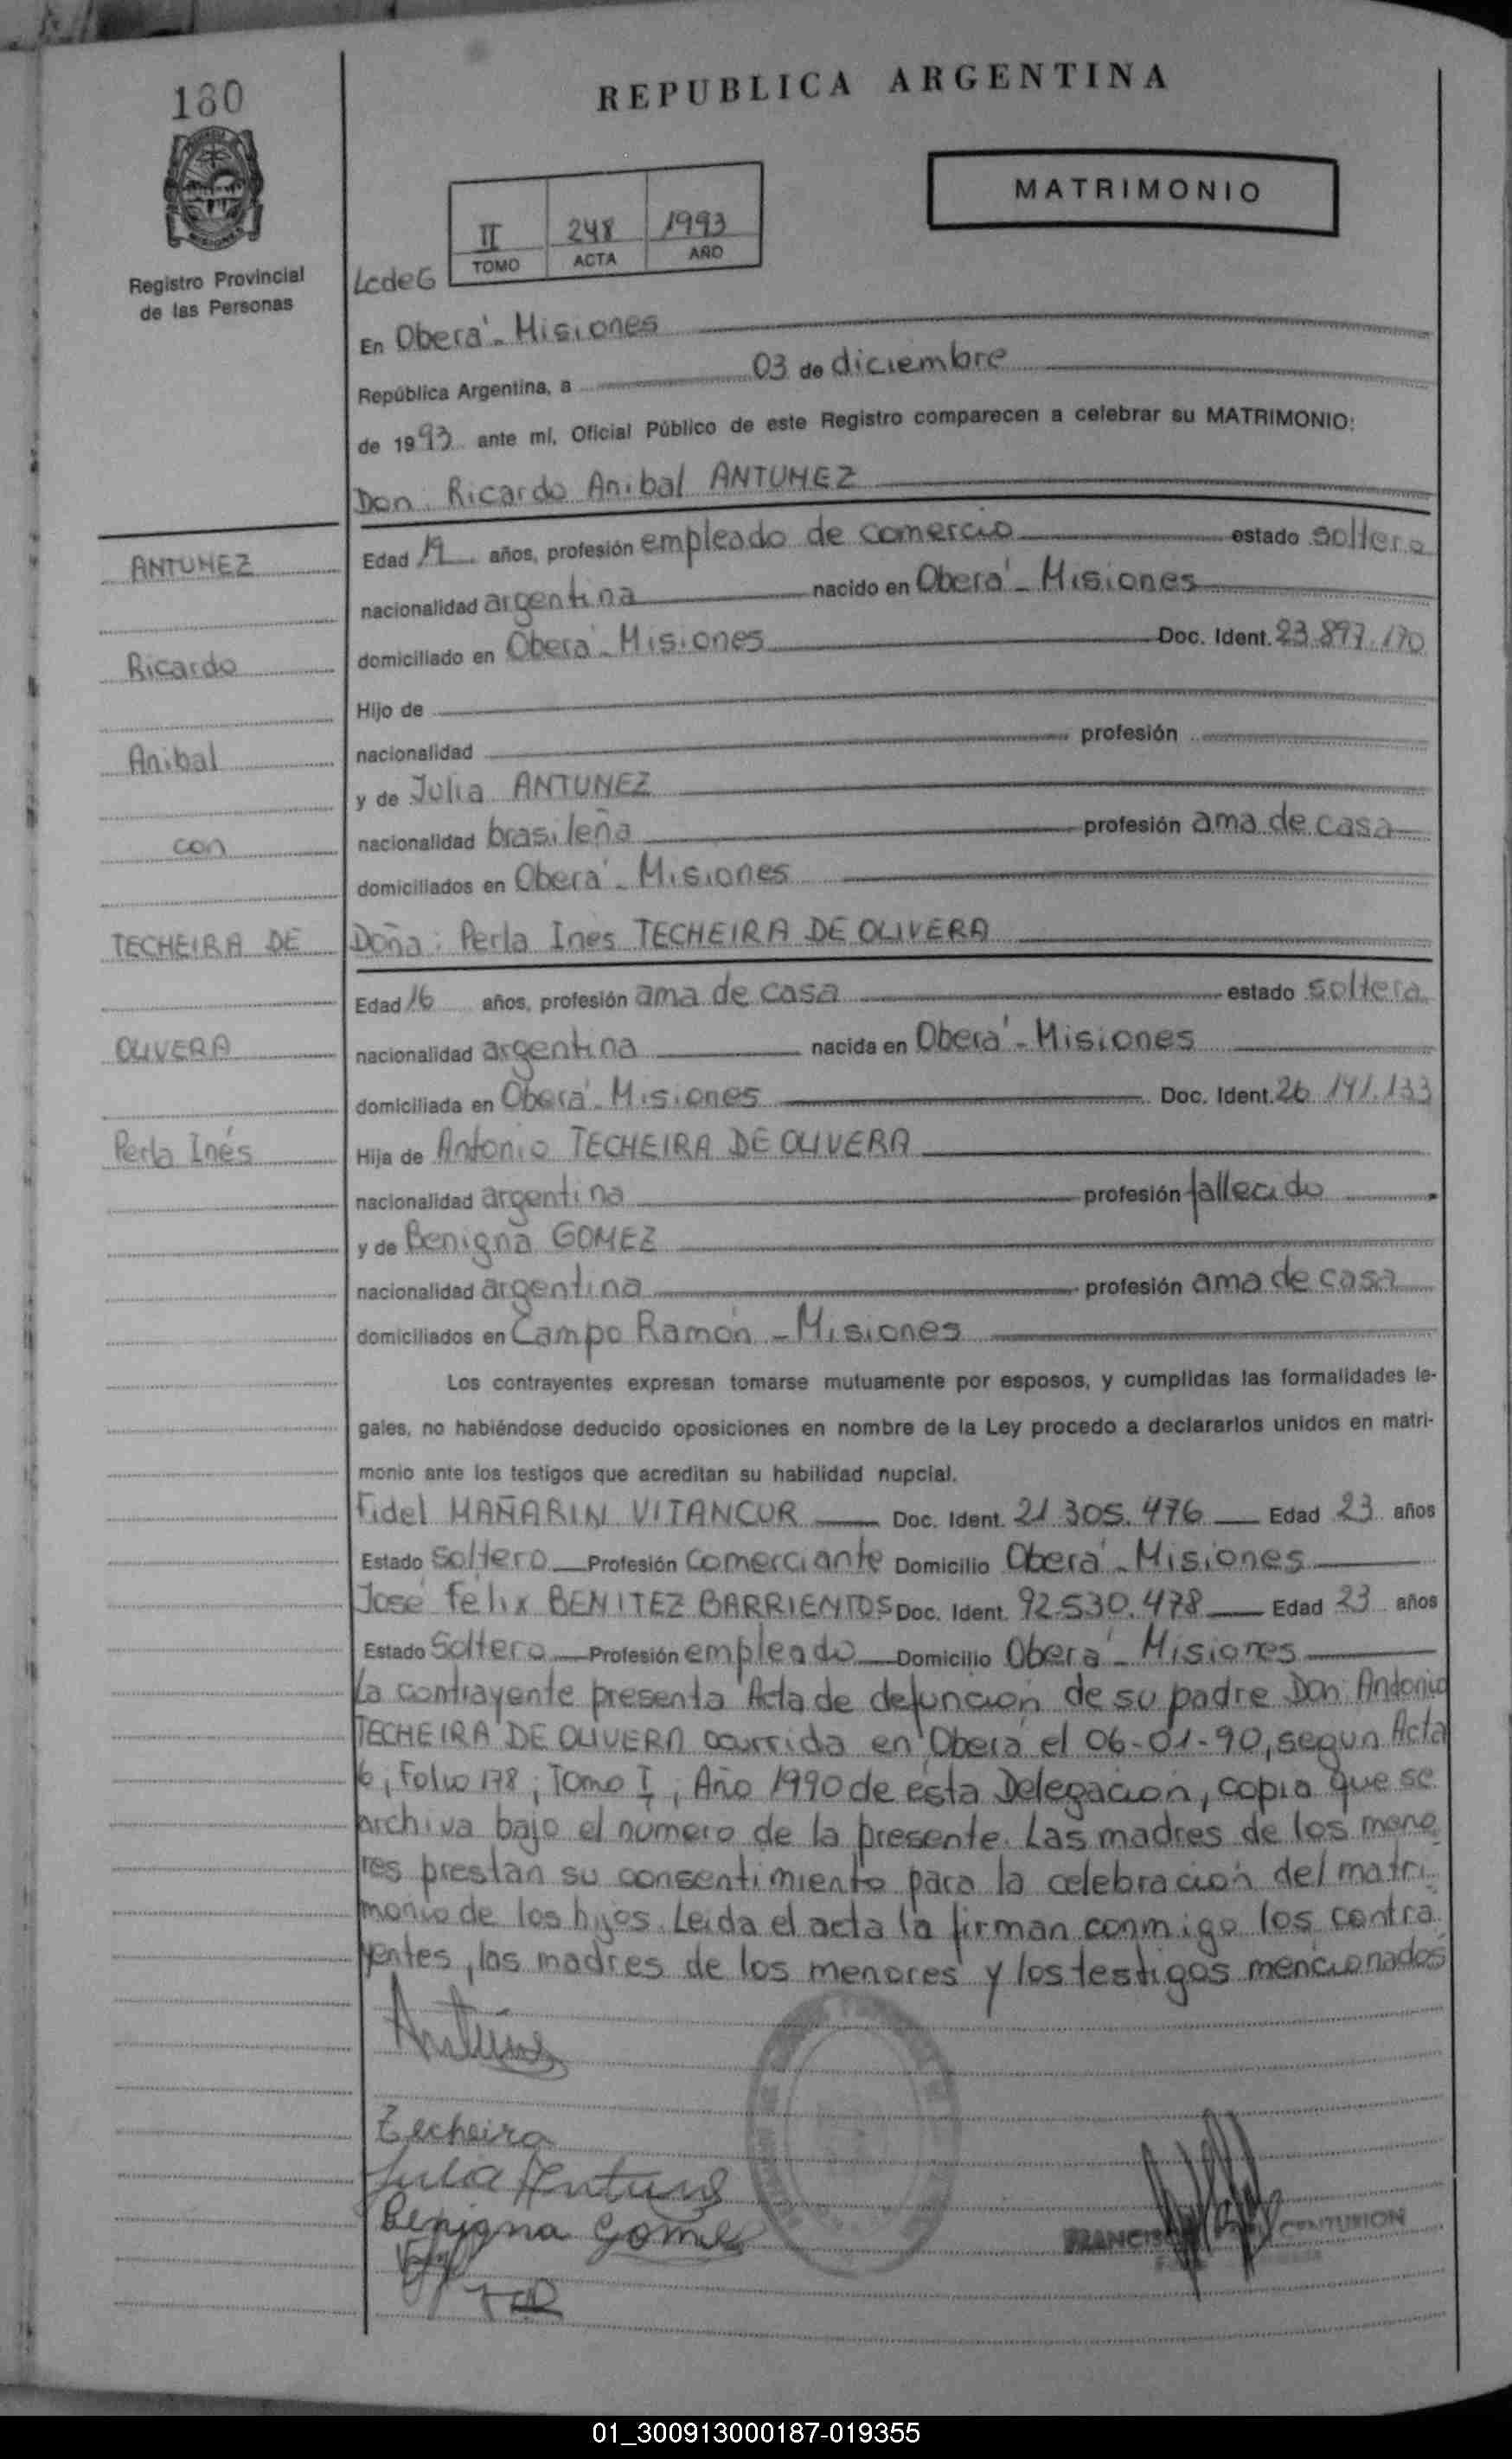 180
REPUBLICA ARGENTINA
MATRIMONIO
II 248 1993
TOMO ACTA AÑO
Registro Provincial
de las Personas
LcdeG
En Oberá - Misiones
República Argentina, a 03 de diciembre
de 1993 ante mí, Oficial Público de este Registro comparecen a celebrar su MATRIMONIO:
Don: Ricardo Anibal ANTUNEZ
ANTUNEZ
Edad 19 años, profesión empleado de comercio estado soltero
nacionalidad argentina nacido en Oberá - Misiones
Ricardo
domiciliado en Oberá - Misiones Doc. Ident. 23.897.170
Hijo de
Anibal
nacionalidad profesión
y de Julia ANTUNEZ
con
nacionalidad brasileña profesión ama de casa
domiciliados en Oberá - Misiones
TECHEIRA DE
Doña: Perla Ines TECHEIRA DE OLIVERA
Edad 16 años, profesión ama de casa estado soltera
OLIVERA
nacionalidad argentina nacida en Oberá - Misiones
domiciliada en Oberá - Misiones Doc. Ident. 26.141.133
Perla Inés
Hija de Antonio TECHEIRA DE OLIVERA
nacionalidad argentina profesión fallecido
y de Benigna GOMEZ
nacionalidad argentina profesión ama de casa
domiciliados en Campo Ramón - Misiones
Los contrayentes expresan tomarse mutuamente por esposos, y cumplidas las formalidades le-
gales, no habiéndose deducido oposiciones en nombre de la Ley procedo a declararlos unidos en matri-
monio ante los testigos que acreditan su habilidad nupcial.
Fidel MAÑARIN VITANCUR Doc. Ident. 21.305.476 Edad 23 años
Estado soltero Profesión comerciante Domicilio Oberá - Misiones
José Félix BENITEZ BARRIENTOS Doc. Ident. 92.530.478 Edad 23 años
Estado Soltero Profesión empleado Domicilio Oberá - Misiones
La contrayente presenta Acta de defunción de su padre Don: Antonio
TECHEIRA DE OLIVERA ocurrida en Oberá el 06-01-90, según Acta
6, Folio 178, Tomo I, Año 1990 de ésta Delegación, copia que se
archiva bajo el numero de la presente. Las madres de los meno
res prestan su consentimiento para la celebración del matri
monio de los hijos. Leída el acta la firman conmigo los contra
yentes, las madres de los menores y los testigos mencionados
Antunez
Techeira
Julia Antunez
Benigna Gomez
CENTURION
01_300913000187-019355